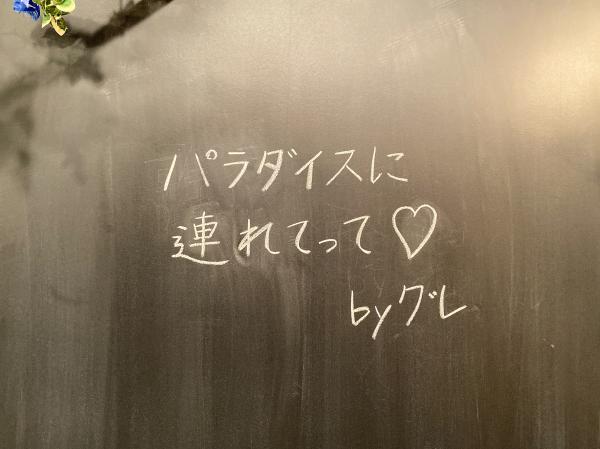 パラダイスに
連れてって♡
byグレ